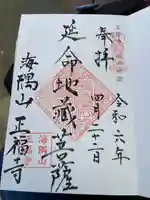 奉拝
令和六年
四月二十二日
延命地蔵菩薩
海隅山 正福寺
海隅山
正福寺